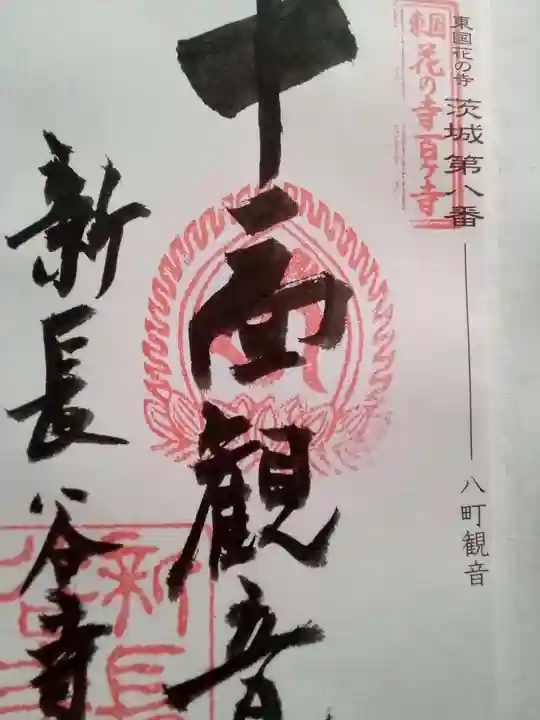 東国花の寺 茨城第八番 八町観音
東国
花の寺百ケ寺
十一面観音
新長谷寺
新長
谷寺